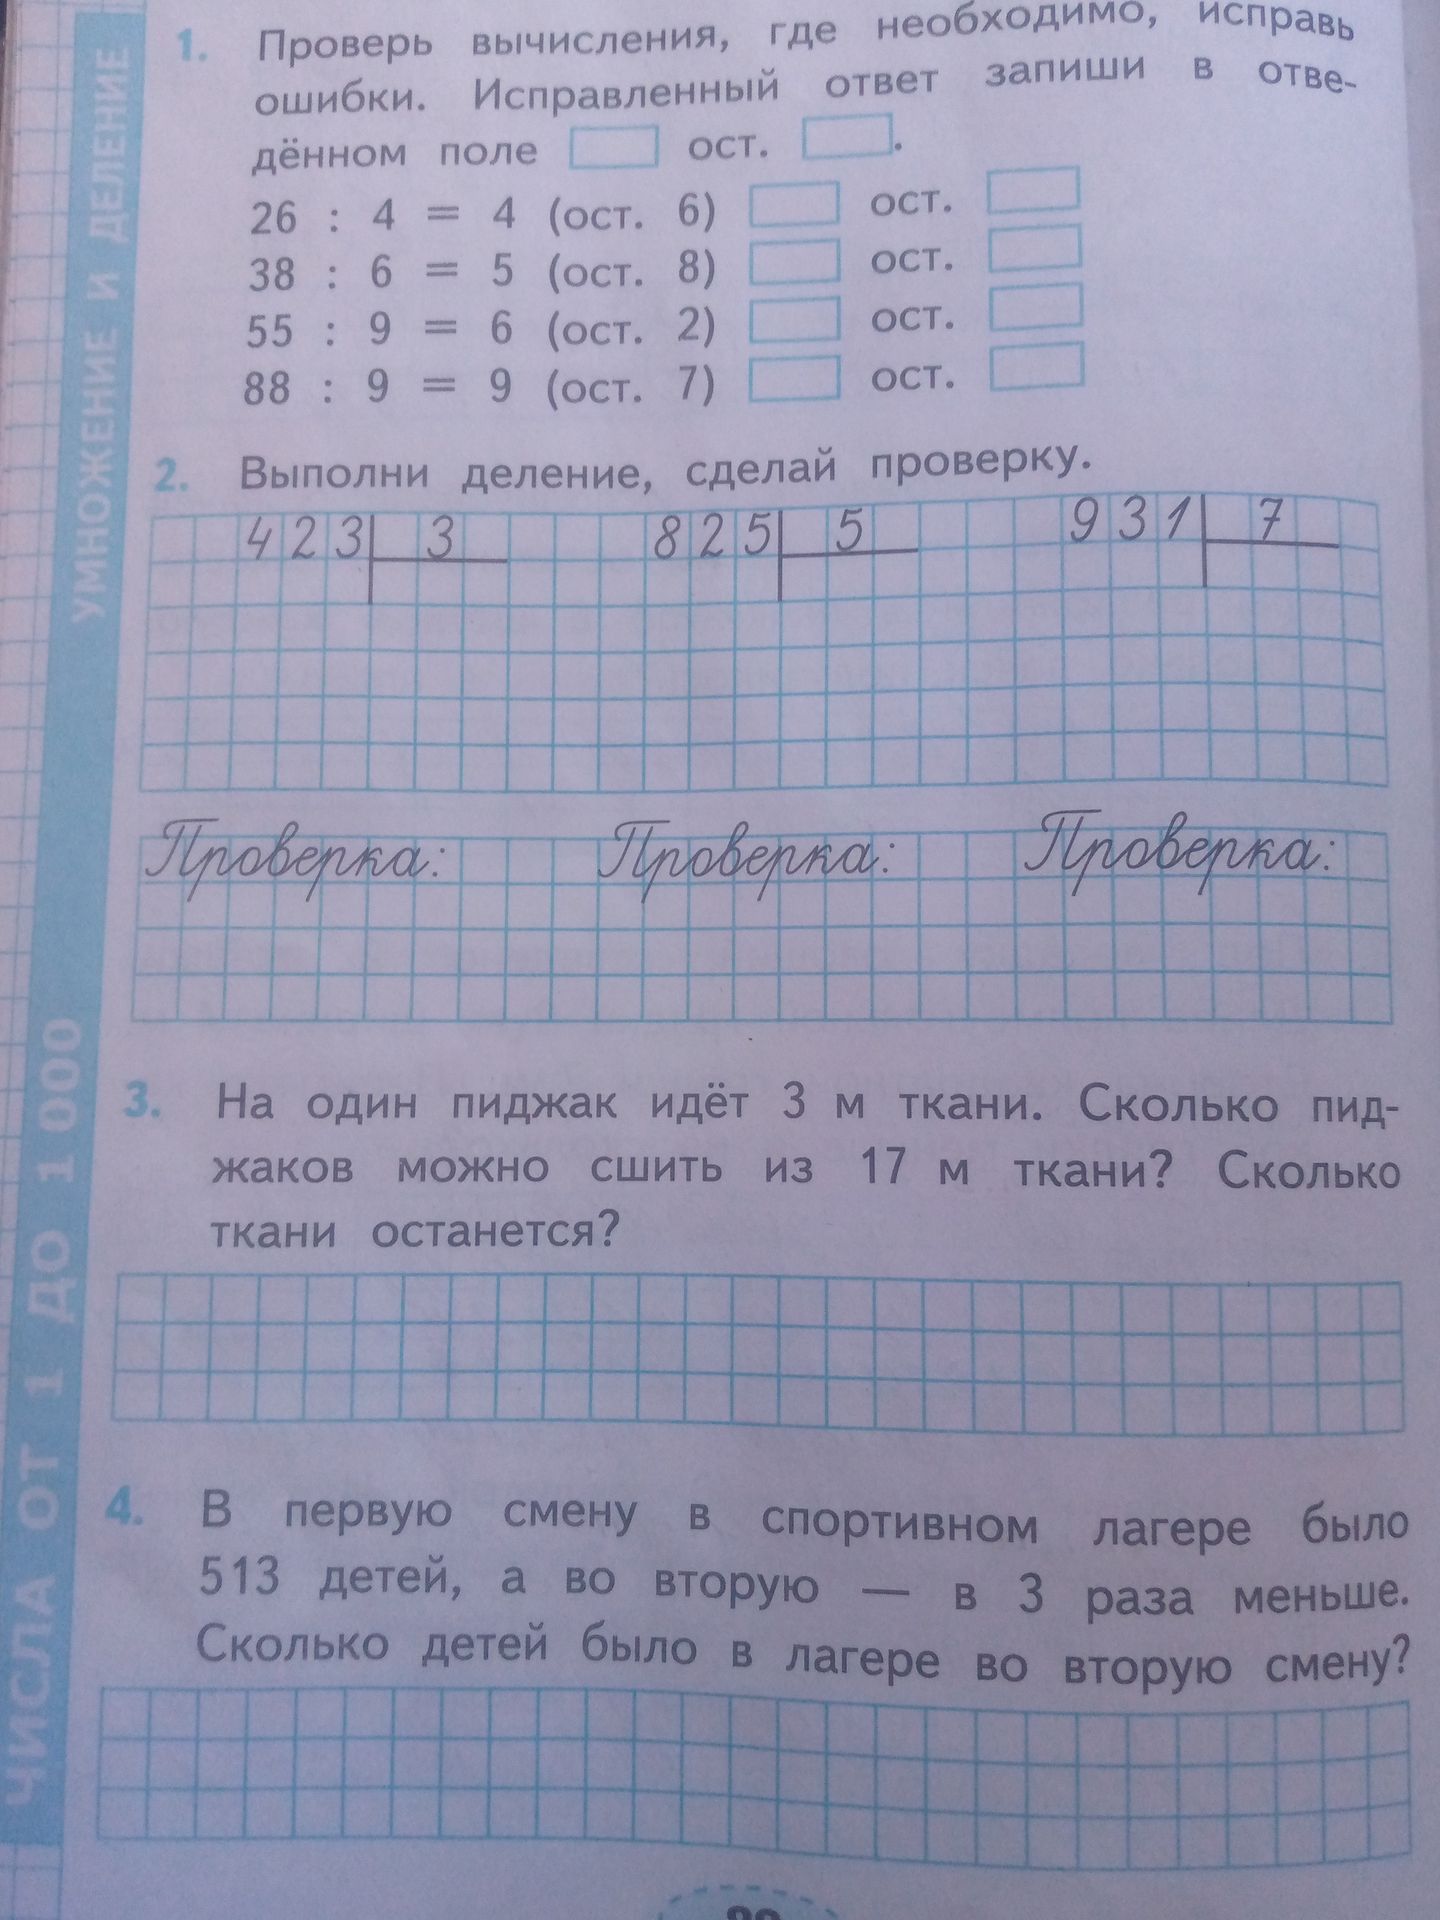 УМНОЖЕНИЕ И ДЕЛЕНИЕ
ЧИСЛА ОТ 1 ДО 1 000
1. Проверь вычисления, где необходимо, исправь
ошибки. Исправленный ответ запиши в отве-
дённом поле ост. .
26 : 4 = 4 (ост. 6) ост.
38 : 6 = 5 (ост. 8) ост.
55 : 9 = 6 (ост. 2) ост.
88 : 9 = 9 (ост. 7) ост.
2. Выполни деление, сделай проверку.
423 3 825 5 931 7
Проверка: Проверка: Проверка:
3. На один пиджак идёт 3 м ткани. Сколько пид-
жаков можно сшить из 17 м ткани? Сколько
ткани останется?
4. В первую смену в спортивном лагере было
513 детей, а во вторую — в 3 раза меньше.
Сколько детей было в лагере во вторую смену?